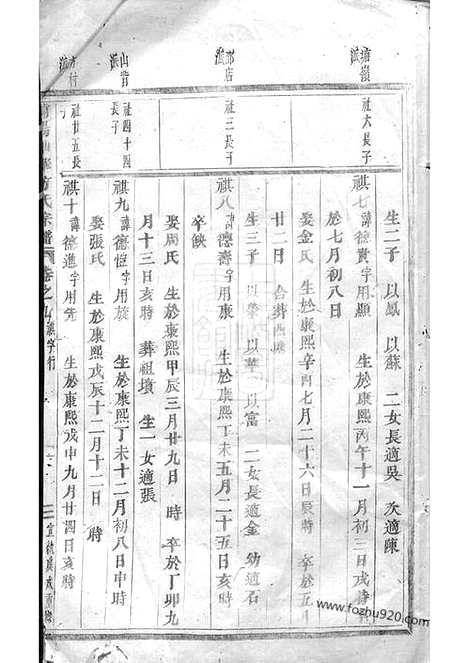 塘嶺
派
社大長子
生二子 以鳳 以蘇 二女長適吳 次適陳
祺七 諱德貴字用顯 生於康熙丙午十一月初三日戌時
於七月初八日
娶金氏 生於康熙辛酉七月二十六日辰時 卒於五十
廿二日 合葬西
店
派
社三長子
生三子 以榮 以華 以富 二女長適金 幼適石
祺八 諱德壽字用康 生於康熙丁未五月二十五日亥時
卒缺
娶周氏 生於康熙甲辰三月廿九日 時 卒於丁卯九
月十三日亥時 葬祖墳 生一女適張
山背
派
社四十四
長子
祺九 諱德恆字用發 生於康熙丁未十二月初八日申時
娶張氏 生於康熙戊辰十二月十二日 時
村
派
社廿五長
子
祺十 諱德進字用先 生於康熙戊申九月廿四日亥時
方氏宗譜 卷之九 祺字行
www.fozhu920.com